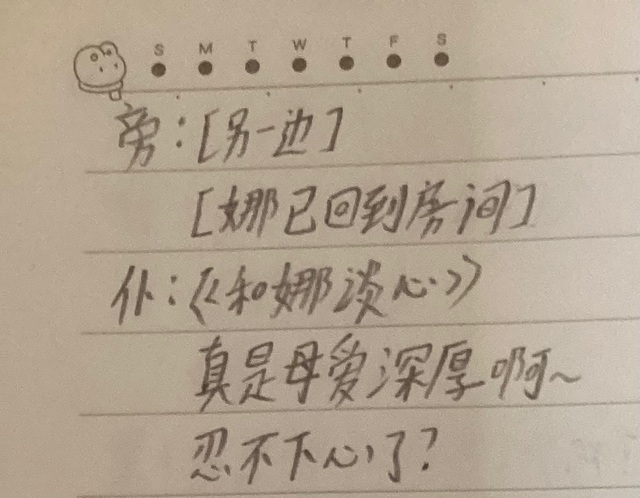 S M T W T F S
旁：[另一边]
[娜已回到房间]
仆：《和娜谈心》
真是母爱深厚啊~
忍不下心了？